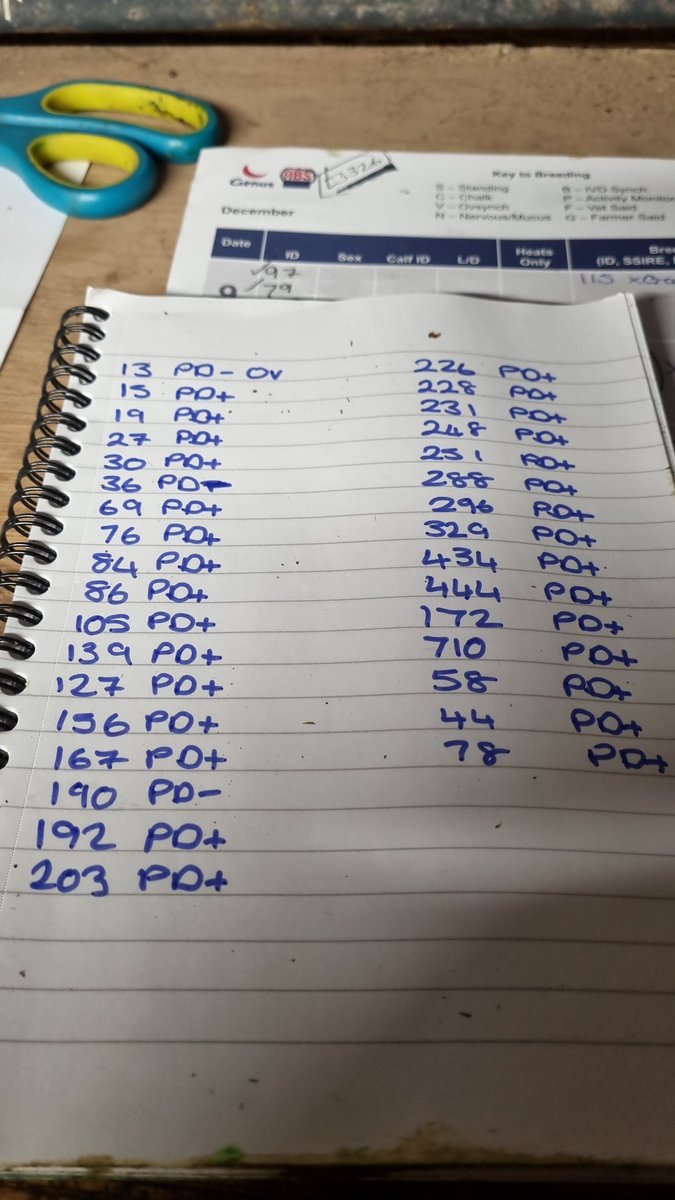 Genus ABS
Key to Breeding
S - Standing B - IVD Synch
C - Chalk P - Activity Monitor
V - Ovsynch F - Vet Said
N - Nervous/Mucus G - Farmer Said
December
Date ID Sex Calf ID L/D Heats Only (ID, SSIRE,
97
79
115
13 PD- OV
15 PD+
19 PD+
27 PD+
30 PD+
36 PD-
69 PD+
76 PD+
84 PD+
86 PD+
105 PD+
139 PD+
127 PD+
156 PD+
167 PD+
190 PD-
192 PD+
203 PD+
226 PD+
228 PD+
231 PD+
248 PD+
251 PD+
288 PD+
296 PD+
329 PD+
434 PD+
444 PD+
172 PD+
710 PD+
58 PD+
44 PD+
78 PD+